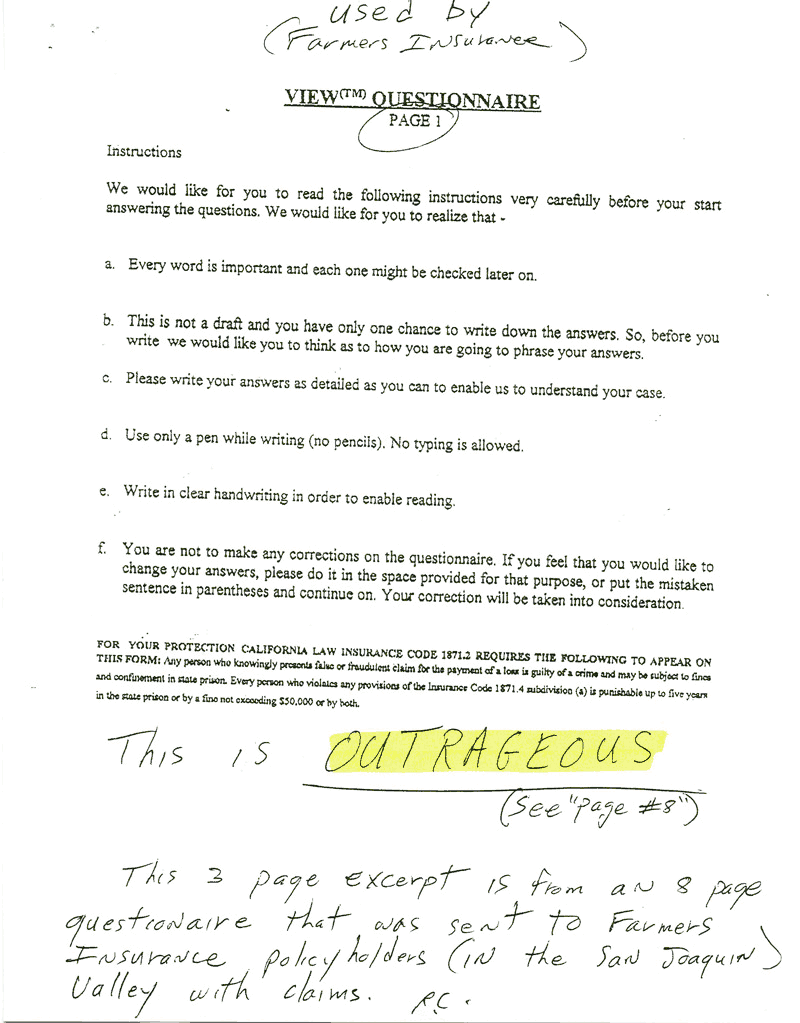 used by
(Farmers Insurance)
VIEW(TM) QUESTIONNAIRE
PAGE 1
Instructions
We would like for you to read the following instructions very carefully before your start
answering the questions. We would like for you to realize that -
a. Every word is important and each one might be checked later on.
b. This is not a draft and you have only one chance to write down the answers. So, before you
write we would like you to think as to how you are going to phrase your answers.
c. Please write your answers as detailed as you can to enable us to understand your case.
d. Use only a pen while writing (no pencils). No typing is allowed.
e. Write in clear handwriting in order to enable reading.
f. You are not to make any corrections on the questionnaire. If you feel that you would like to
change your answers, please do it in the space provided for that purpose, or put the mistaken
sentence in parentheses and continue on. Your correction will be taken into consideration.
FOR YOUR PROTECTION CALIFORNIA LAW INSURANCE CODE 1871.2 REQUIRES THE FOLLOWING TO APPEAR ON
THIS FORM: Any person who knowingly presents false or fraudulent claim for the payment of a loss is guilty of a crime and may be subject to fines
and confinement in state prison. Every person who violates any provisions of the Insurance Code 1871.4 subdivision (a) is punishable up to five years
in the state prison or by a fine not exceeding $50,000 or by both.
This is OUTRAGEOUS
(See "page #8")
This 3 page excerpt is from an 8 page
questionaire that was sent to Farmers
Insurance policyholders (in the San Joaquin)
Valley with claims. R.C.